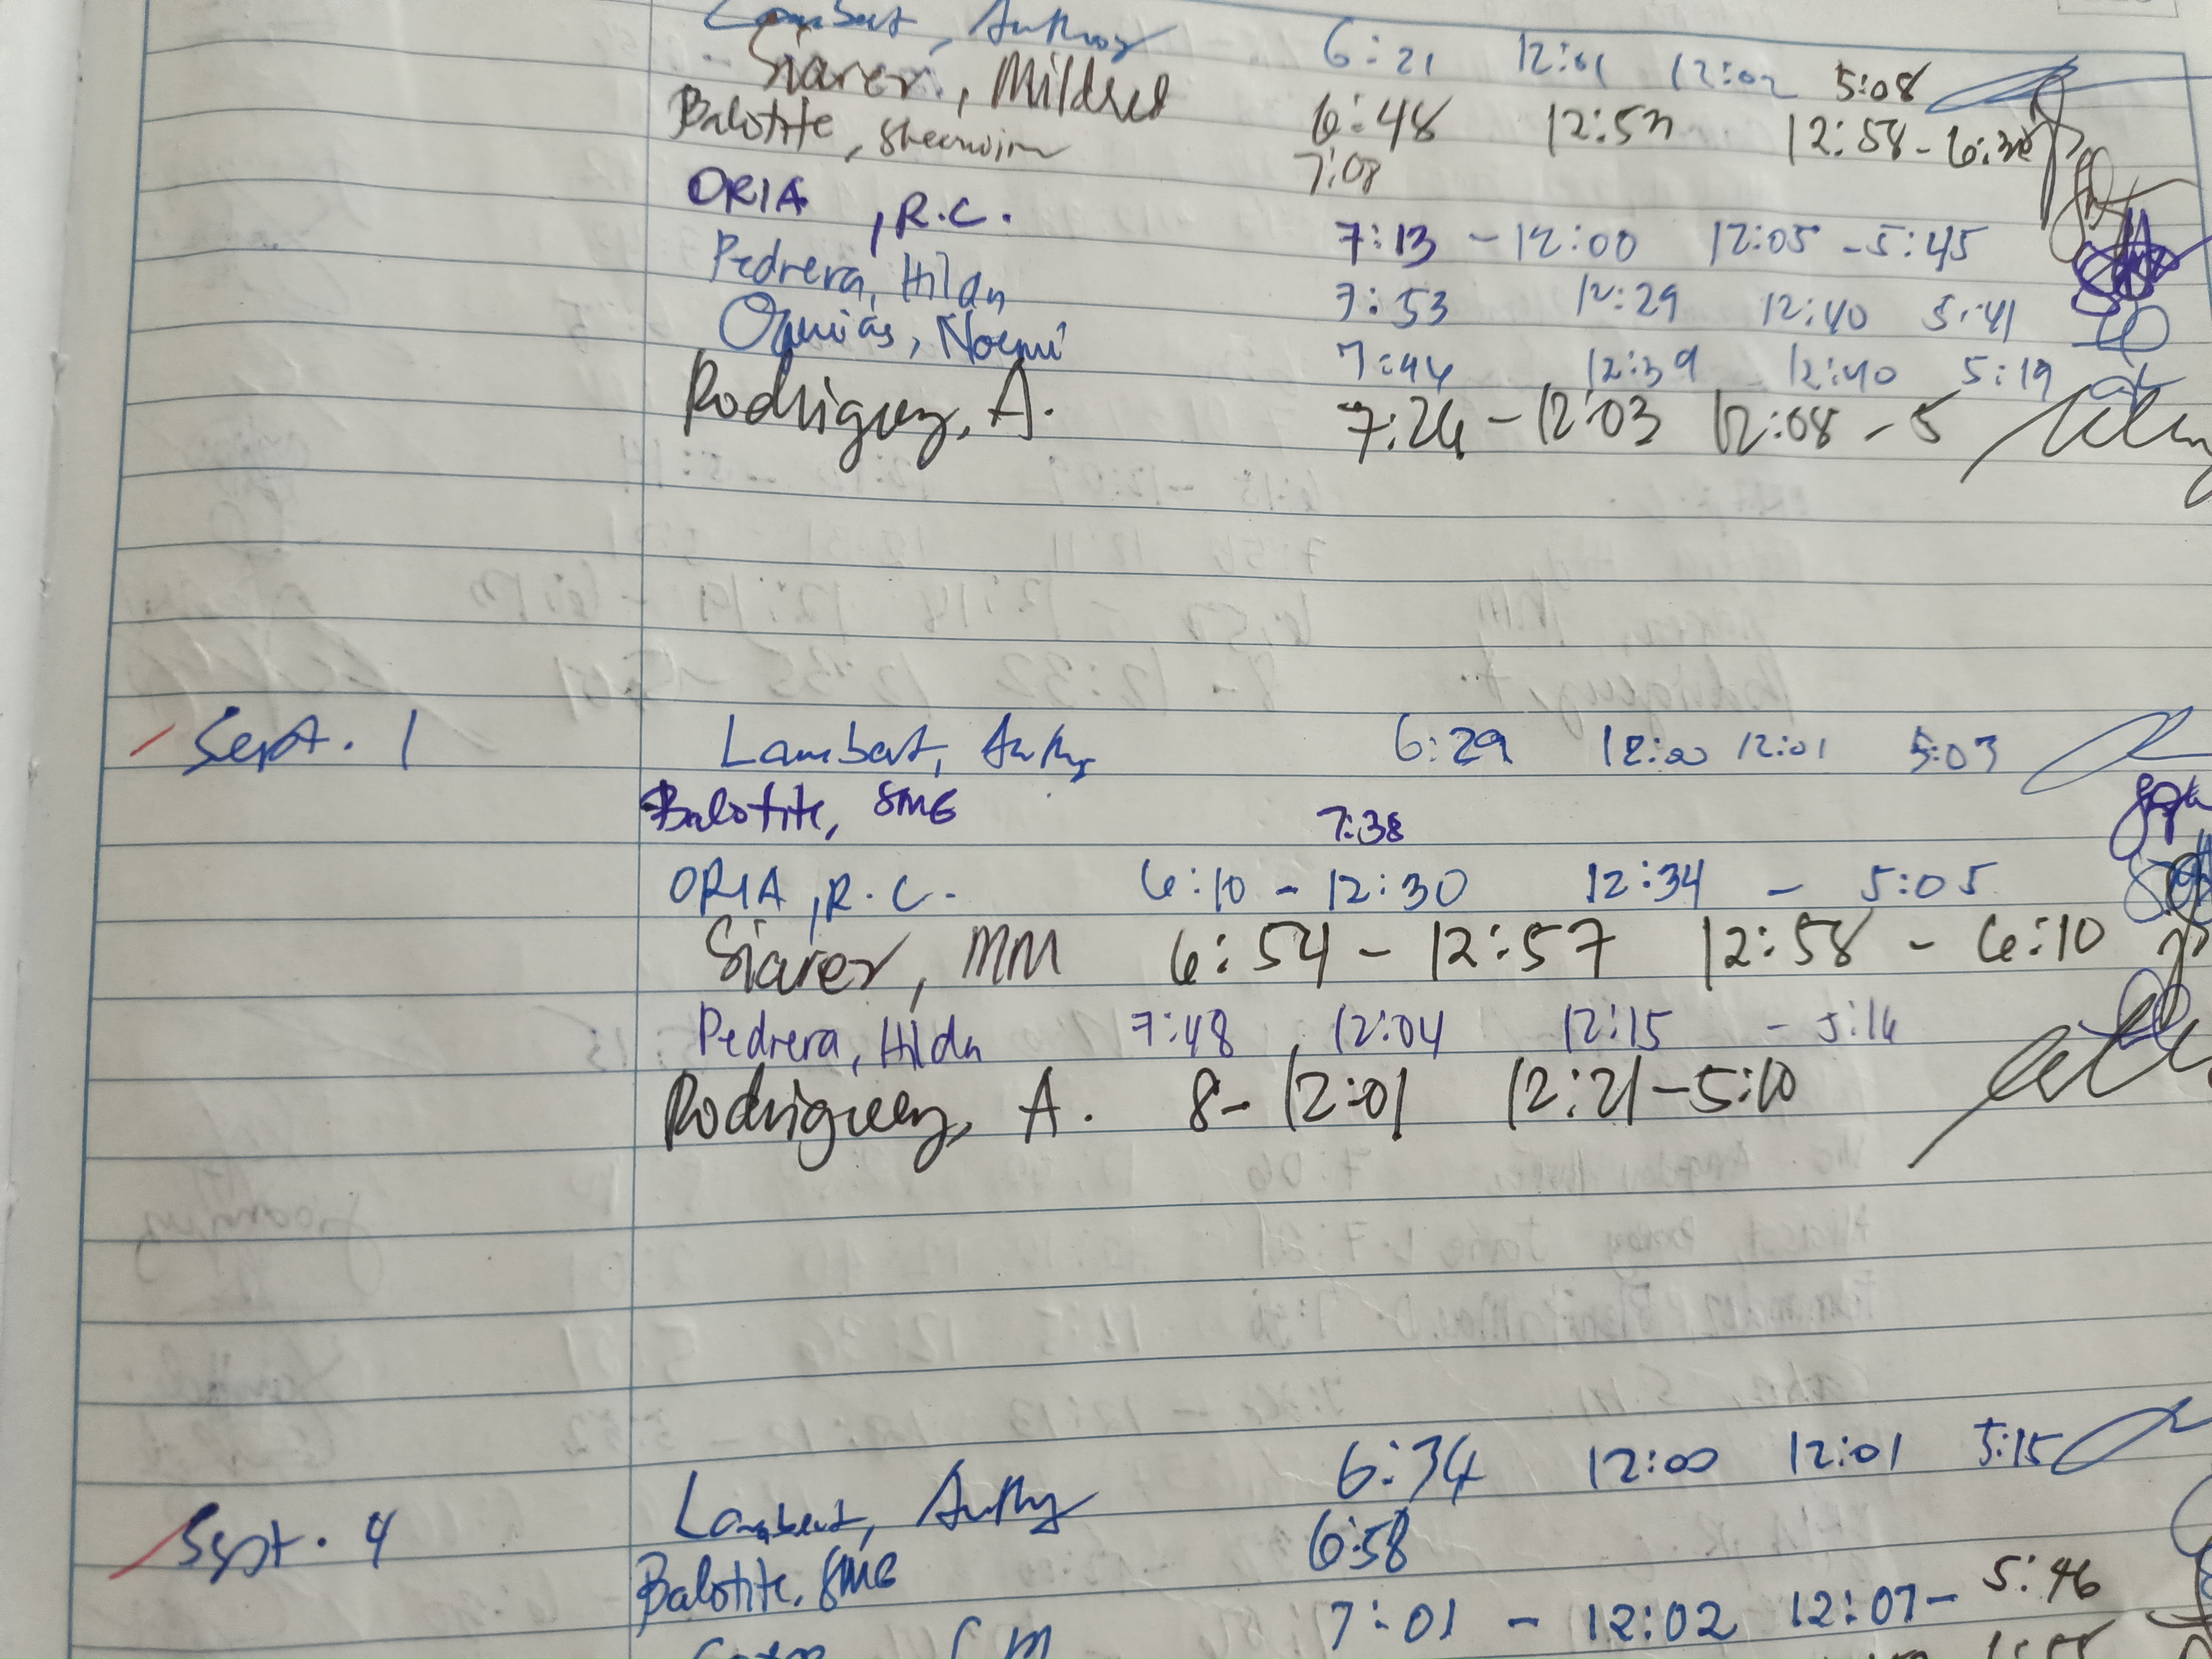 Lambert, Anthony 6:21 12:01 12:02 5:08
Siarez, Mildred 6:48 12:57 12:58 - 6:30
Balotite, Sheenwin 7:08
ORIA, R.C. 7:13 - 12:00 12:05 - 5:45
Pedrera, Hilda 7:53 12:29 12:40 5:41
Noemi 7:44 12:39 12:40 5:19
Rodriguez, A. 7:26 - 12:03 12:08 - 5
Sept. 1 Lambert, Anthy 6:29 12:00 12:01 5:03
Balotite, SME 7:38
ORIA, R.C. 6:10 - 12:30 12:34 - 5:05
Siarez, MM 6:54 - 12:57 12:58 - 6:10
Pedrera, Hilda 7:48 12:04 12:15 - 5:16
Rodriguez, A. 8 - 12:01 12:21 - 5:10
Sept. 4 Lambert, Anthy 6:34 12:00 12:01 5:15
Balotite, SME 6:58
7:01 - 12:02 12:07 - 5:46